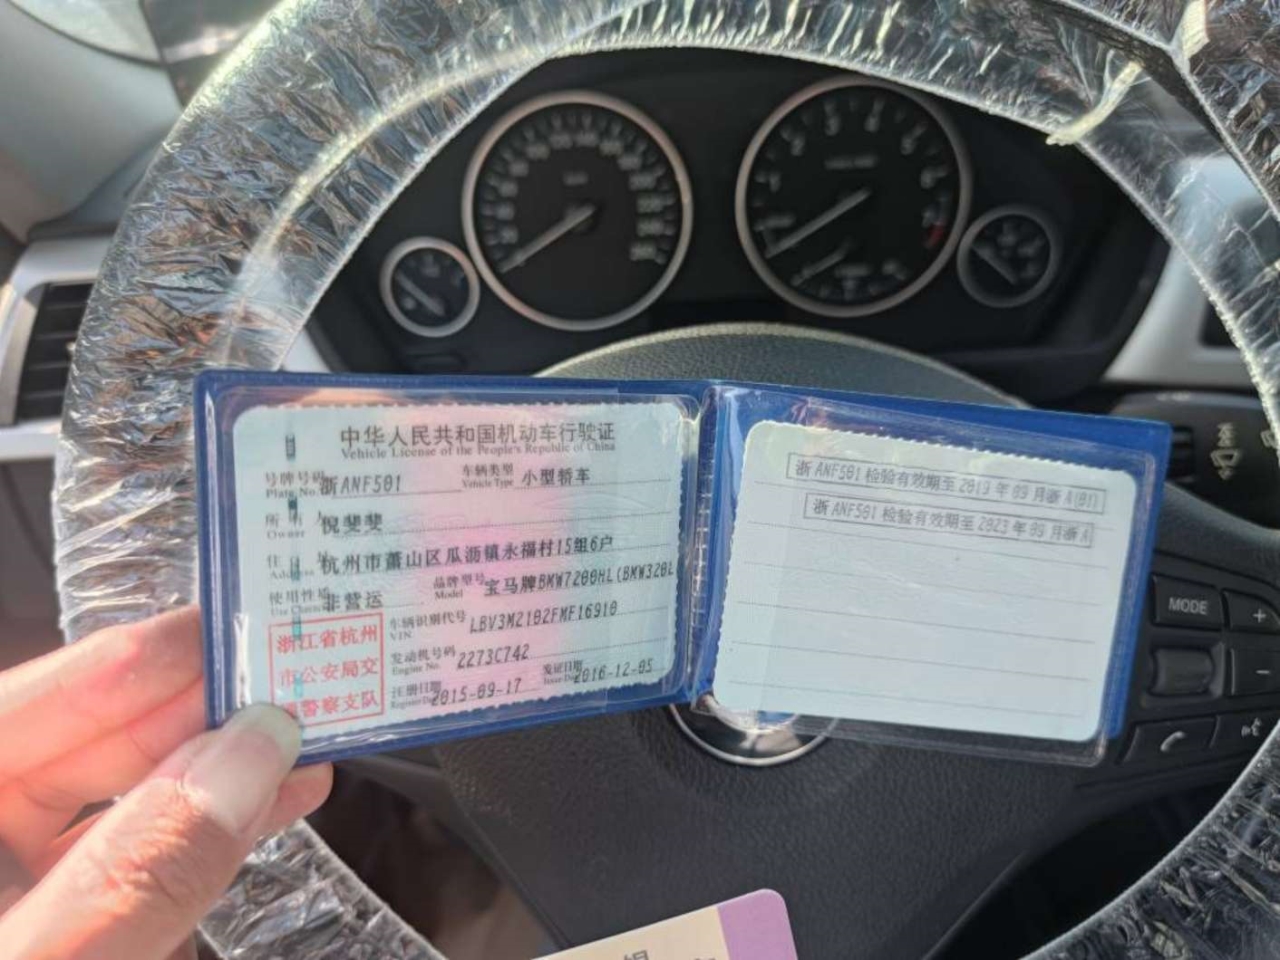 中华人民共和国机动车行驶证
Vehicle License of the People's Republic of China
号牌号码 浙ANF501 车辆类型 小型轿车
Plate No. Vehicle Type
所有人 倪斐斐
Owner
住 址 杭州市萧山区瓜沥镇永福村15组6户
Address
使用性质 非营运 品牌型号 宝马牌BMW7200HL(BMW320L
Use Character Model
浙江省杭州
市公安局交
通警察支队
车辆识别代号 LBV3M2102FMF16910
VIN
发动机号码 2273C742
Engine No.
注册日期 2015-09-17 发证日期 2016-12-05
Register Date Issue Date
浙ANF501检验有效期至2019年09月浙A(01)
浙ANF501检验有效期至2023年09月浙A
MODE